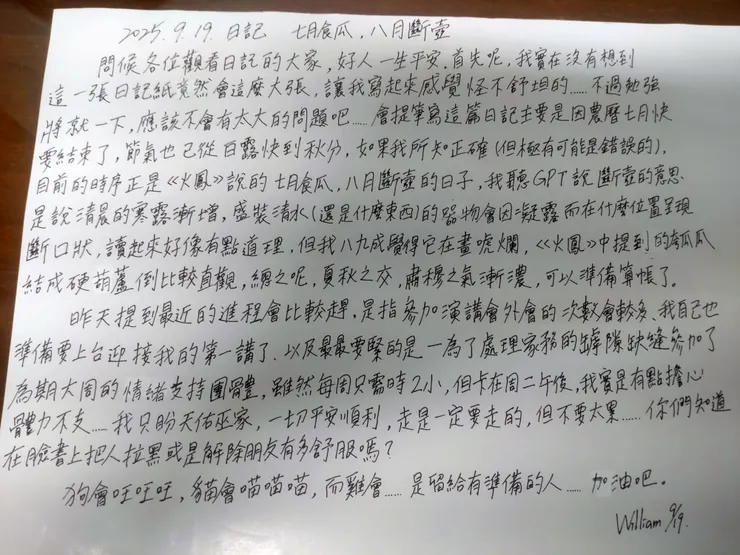 2025.9.19. 日記　七月食瓜，八月斷壺
問候各位觀看日記的大家，好人一生平安。首先呢，我實在沒有想到
這一張日記紙竟然會這麼大張，讓我寫起來感覺怪不舒坦的……不過勉強
將就一下，應該不會有太大的問題吧……會提筆寫這篇日記主要是因農曆七月快
要結束了，節氣也已從白露快到秋分，如果我所知正確(但極有可能是錯誤的)，
目前的時序正是《火鳳》說的七月食瓜，八月斷壺的日子，我聽GPT說斷壺的意思
是說清晨的寒露漸增，盛裝清水(還是什麼東西)的器物會因凝露而在什麼位置呈現
斷口狀，讀起來好像有點道理，但我八九成覺得它在畫唬爛，《火鳳》中提到的瓠瓜
結成硬葫蘆倒比較直觀，總之呢，夏秋之交，肅穆之氣漸濃，可以準備算帳了。
昨天提到最近的進程會比較趕，是指參加演講會外會的次數會較多、我自己也
準備要上台迎接我的第一講了，以及最最要緊的是—為了處理家務的罅隙缺縫參加了
為期大周的情緒支持團體，雖然每周只需時2小，但卡在周二午後，我實是有點擔心
體力不支……我只盼天佑巫家，一切平安順利，走是一定要走的，但不要太累……你們知道
在臉書上把人拉黑或是解除朋友有多舒服嗎？
狗會汪汪汪，貓會喵喵喵，而雞會……是留給有準備的人……加油吧。
William 9/19.